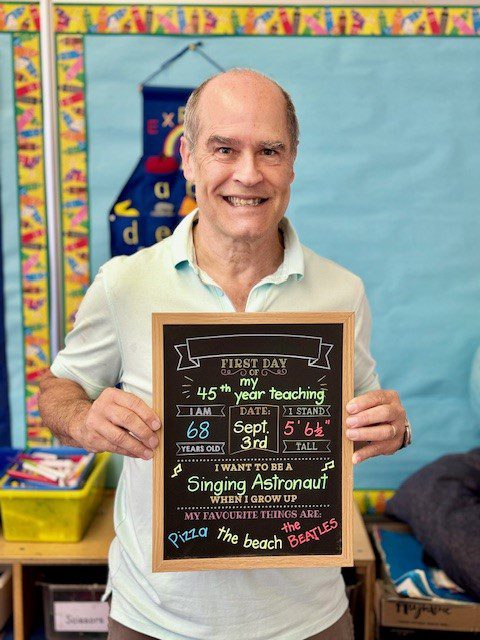 EXP
a b
d e
FIRST DAY
OF
my
45th year teaching
I AM
68
YEARS OLD
DATE:
Sept.
3rd
I STAND
5' 6½"
TALL
I WANT TO BE A
Singing Astronaut
WHEN I GROW UP
MY FAVOURITE THINGS ARE:
Pizza the beach the BEATLES
Scissors